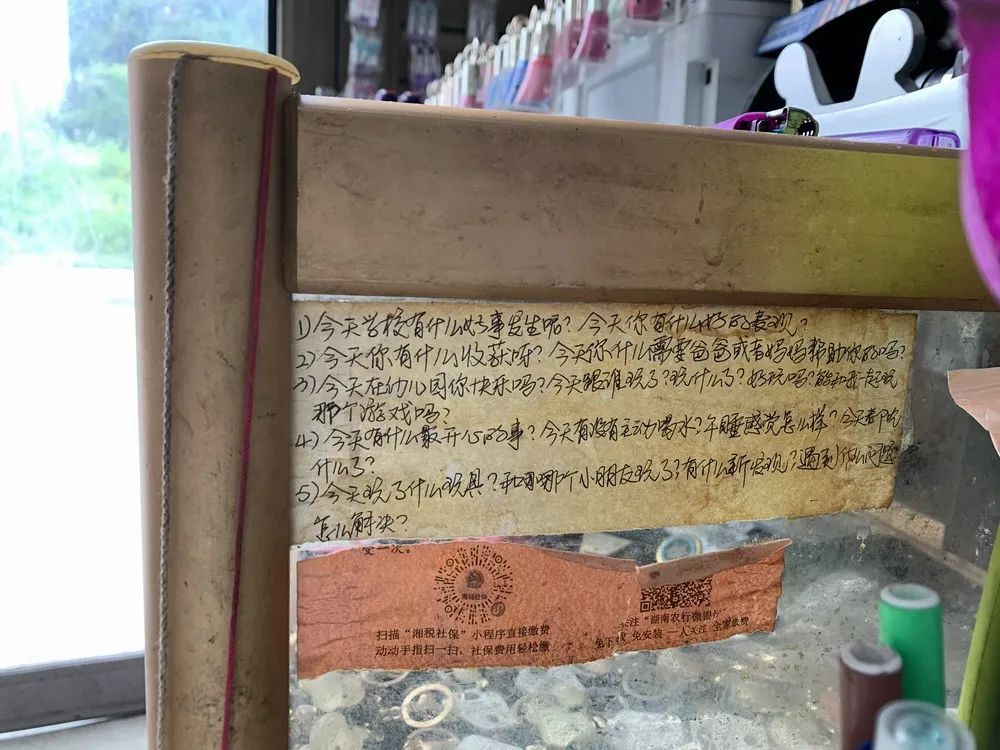 1) 今天学校有什么好事发生呢? 今天你有什么好的表现?
2) 今天你有什么收获呀? 今天你什么需要爸爸或者妈妈帮助你的吗?
3) 今天在幼儿园你快乐吗? 今天跟谁玩了? 玩什么了? 好玩吗? 能和我一起玩
那个游戏吗?
4) 今天有什么最开心的事? 今天有没有主动喝水? 午睡感觉怎么样? 今天都吃
什么了?
5) 今天玩了什么玩具? 和哪个小朋友玩了? 有什么新发现? 遇到什么问题
怎么解决?
变一次。
湘税社保
扫描“湘税社保”小程序直接缴费
动动手指扫一扫,社保费用轻松缴
关注“湖南农行微银行
免下载 免安装 一人关注 全家缴费